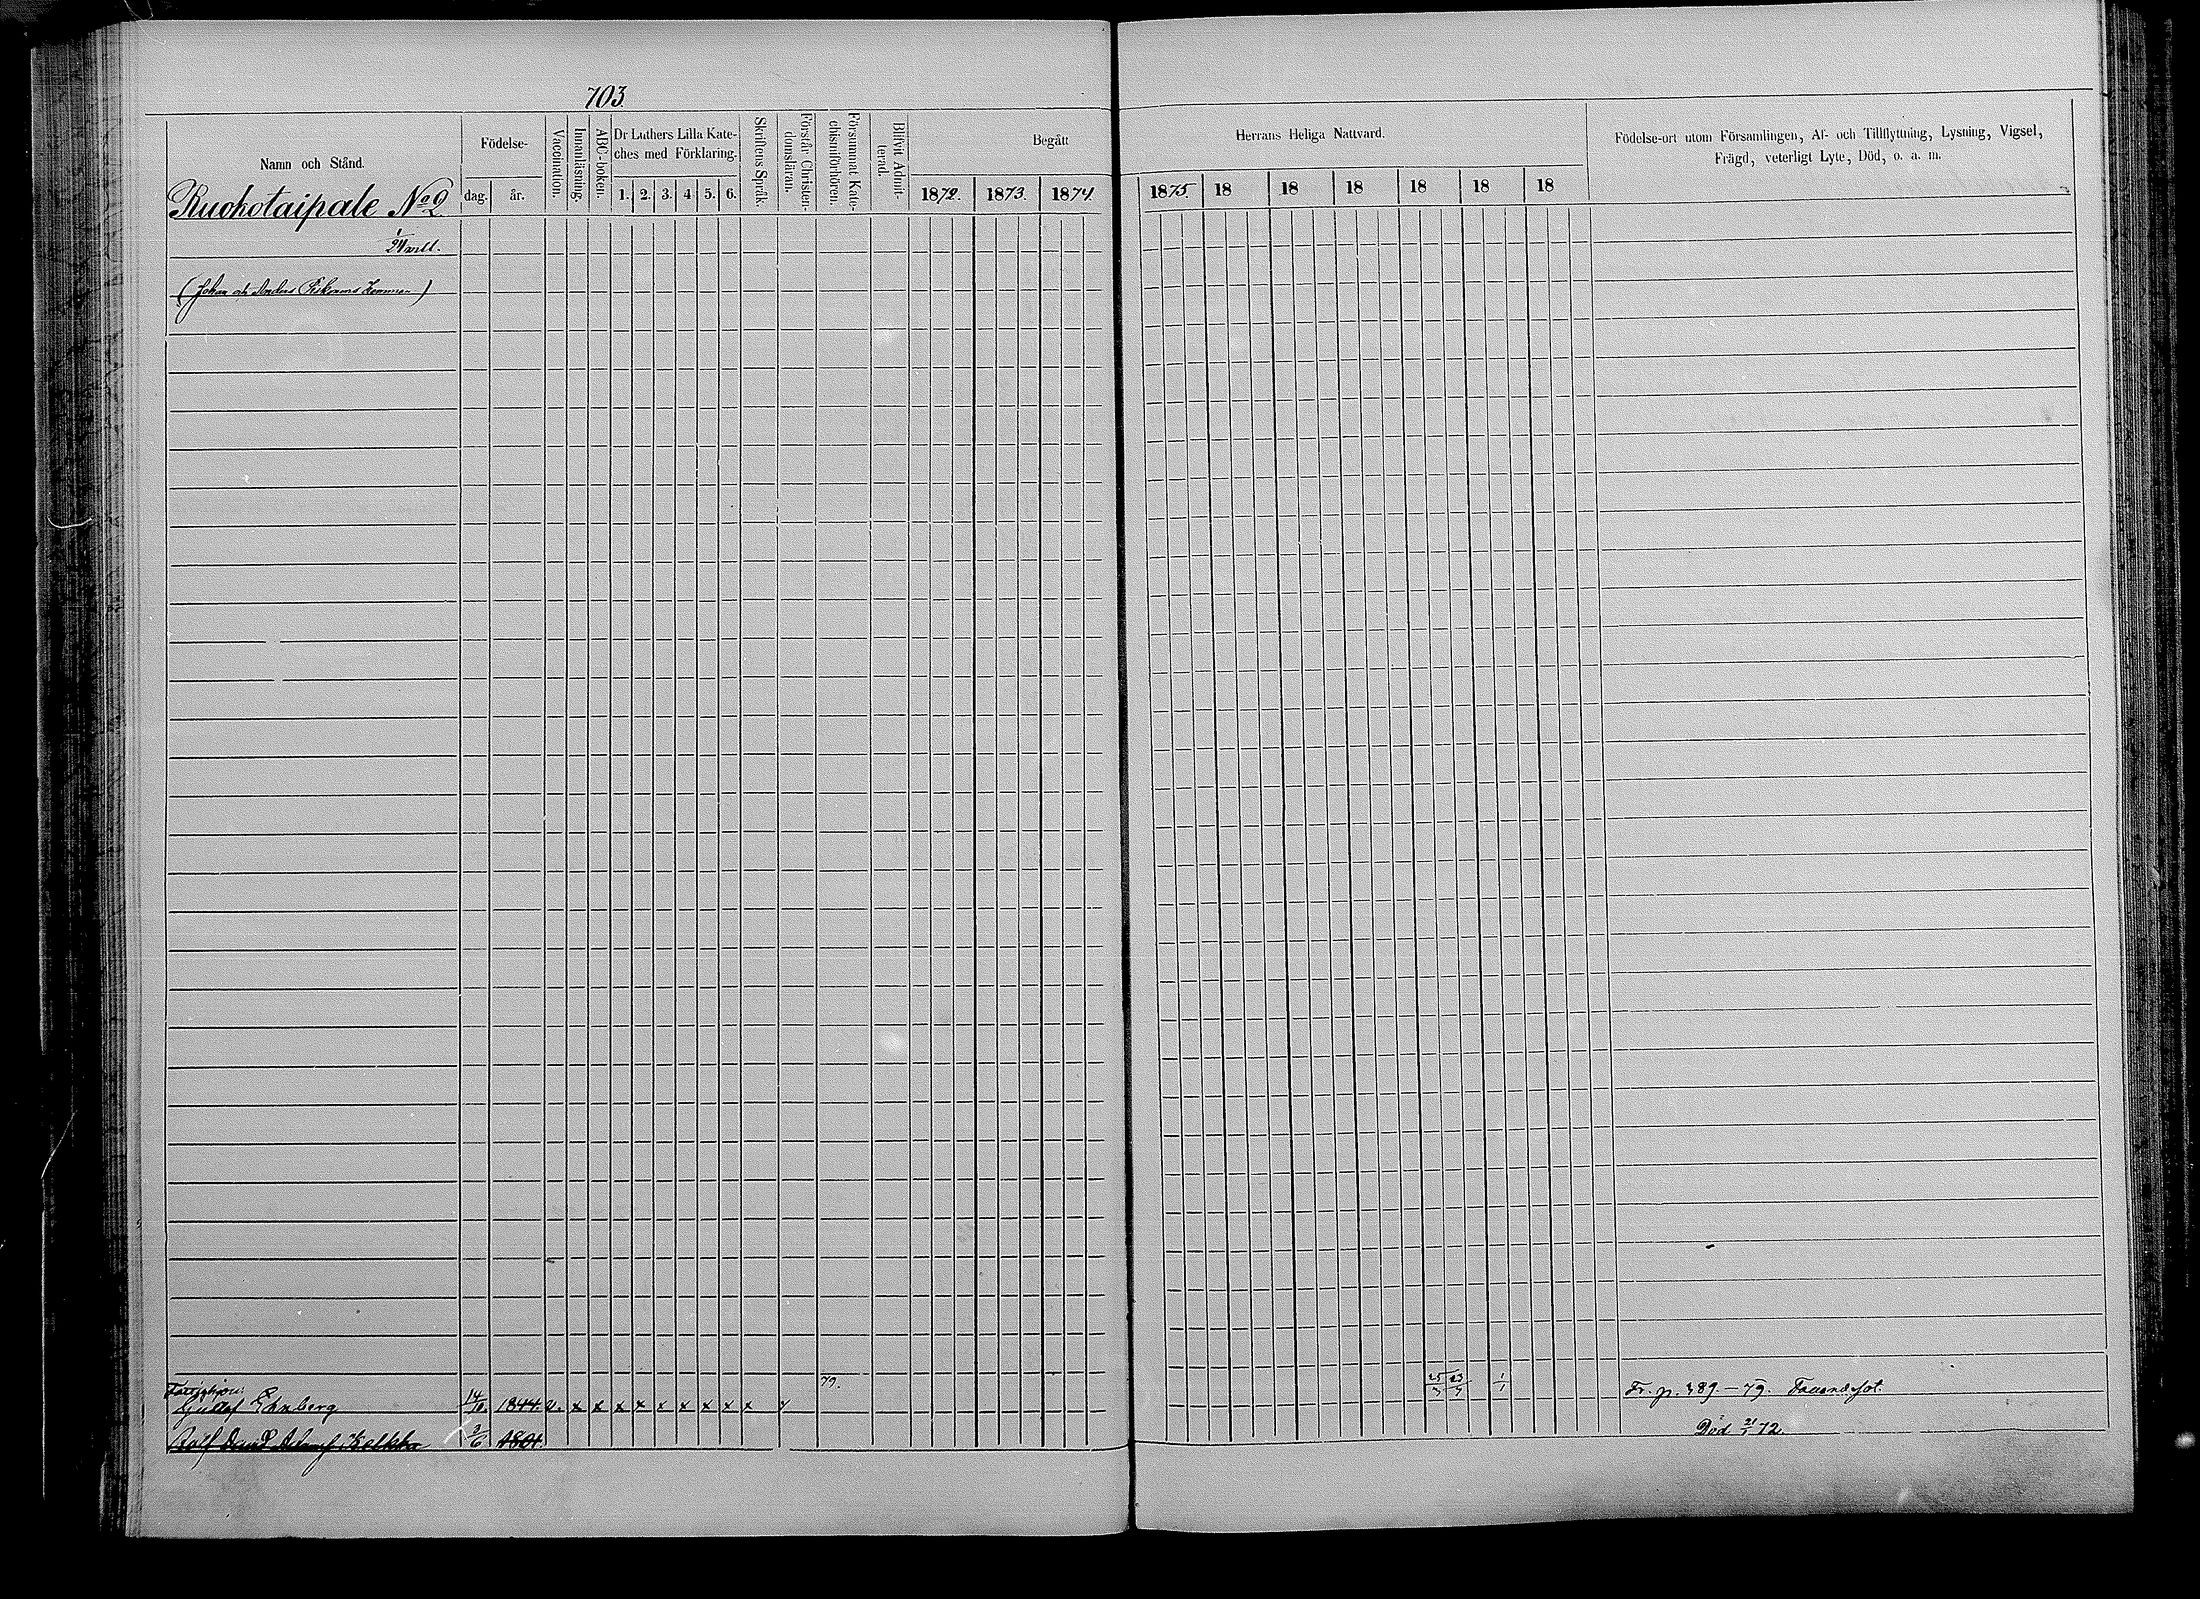 703.
Namn och Stånd.
Födelse-
dag. år.
Vaccination.
Innanläsning.
ABC-boken.
Dr Luthers Lilla Kate-
ches med Förklaring.
1. 2. 3. 4. 5. 6.
Skriftens Språk.
Förstår Christen-
domsläran.
Försummat Kate-
chismiförhören.
Blifvit Admit-
terad.
Begått
1872. 1873. 1874.
Herrans Heliga Nattvard.
1875. 18 18 18 18 18 18
Födelse-ort utom Församlingen, Af- och Tillflyttning, Lysning, Vigsel,
Frägd, veterligt Lyte, Död, o. a. m.
Ruokotaipale No 2
1/24 mtl.
(Johan och Anders hemman)
79.
Gustaf Ehnberg 14/10. 1844. v. x x x x x x x x x 25/3 23/7 1/1 Fr. p. 389 - 79.
David Kelkka 2/6 1801. Död 21/1 72.